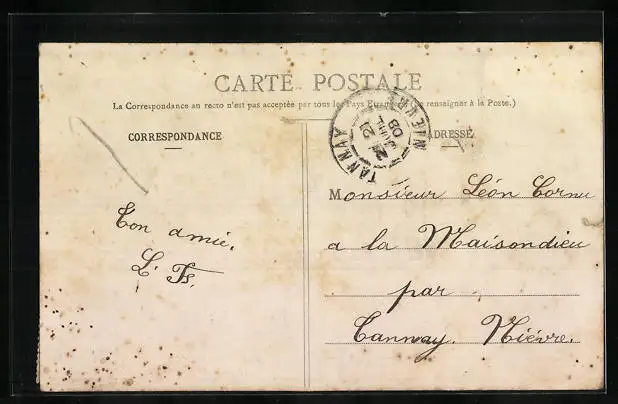 CARTE POSTALE
La Correspondance au recto n'est pas acceptée par tous les Pays (Se renseigner à la Poste.)
CORRESPONDANCE
ADRESSE
TANNAY
NIEVRE
21
JUIL
08
Monsieur Léon Cornu
a la Maisondieu
par
Tannay. Nièvre.
Ton amie.
L. Fs.